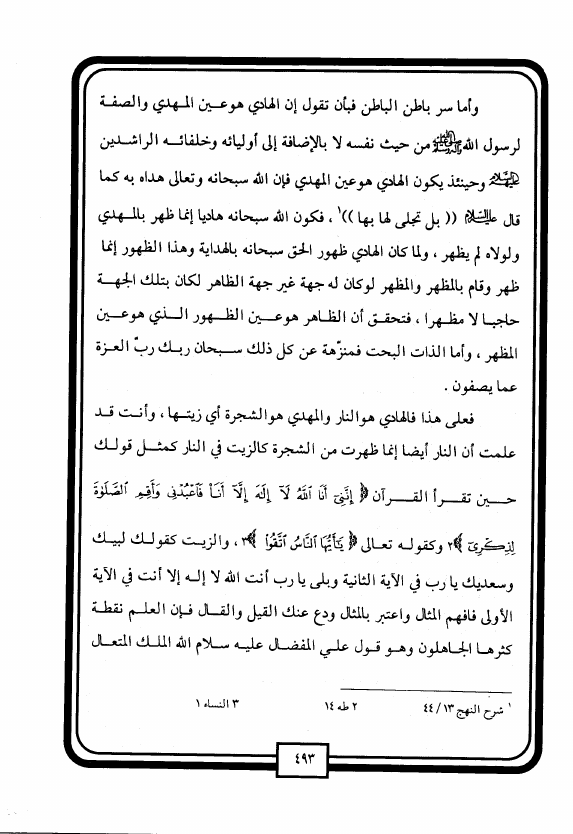 وأما سر باطن الباطن فبأن تقول إن الهادي هو عين المهدي والصفة
لرسول الله صلى الله عليه وآله وسلم من حيث نفسه لا بالإضافة إلى أوليائه وخلفائه الراشدين
عليهم السلام وحينئذ يكون الهادي هو عين المهدي فإن الله سبحانه وتعالى هداه به كما
قال عليه السلام (( بل تجلى لها بها ))١ ، فكون الله سبحانه هاديا إنما ظهر بالمهدي
ولولاه لم يظهر ، ولما كان الهادي ظهور الحق سبحانه بالهداية وهذا الظهور إنما
ظهر وقام بالمظهر والمظهر لو كان له جهة غير جهة الظاهر لكان بتلك الجهة
حاجبا لا مظهرا ، فتحقق أن الظاهر هو عين الظهور الذي هو عين
المظهر ، وأما الذات البحت فمنزهة عن كل ذلك سبحان ربك ربّ العزة
عما يصفون .
فعلى هذا فالهادي هو النار والمهدي هو الشجرة أي زيتها ، وأنت قد
علمت أن النار أيضا إنما ظهرت من الشجرة كالزيت في النار كمثل قولك
حين تقرأ القرآن ﴿ إِنَّنِي أَنَا اللَّهُ لَا إِلَهَ إِلَّا أَنَا فَاعْبُدْنِي وَأَقِمِ الصَّلَوٰةَ
لِذِكْرِي ﴾٢ وكقوله تعالى ﴿ يَا أَيُّهَا النَّاسُ اتَّقُوا ﴾٣ ، والزيت كقولك لبيك
وسعديك يا رب في الآية الثانية وبلى يا رب أنت الله لا إله إلا أنت في الآية
الأولى فافهم المثال واعتبر بالمثال ودع عنك القيل والقال فإن العلم نقطة
كثرها الجاهلون وهو قول علي المفضال عليه سلام الله الملك المتعال
١ شرح النهج ١٣/ ٤٤ ٢ طه ١٤ ٣ النساء ١
٤٩٣